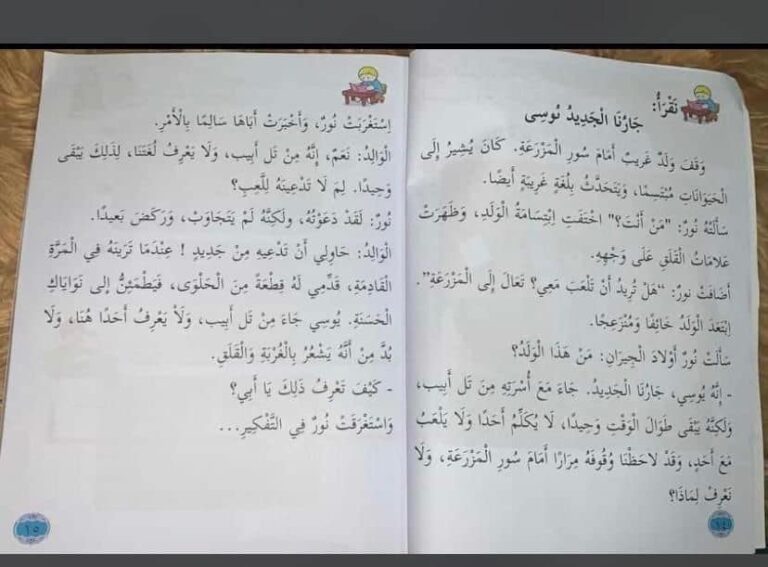 نَقْرَأُ:
جَارُنَا الْجَدِيدُ نُوسِي
وَقَفَ وَلَدٌ غَرِيبٌ أَمَامَ سُورِ الْمَزْرَعَةِ. كَانَ يُشِيرُ إِلَى
الْحَيَوَانَاتِ مُبْتَسِمًا، وَيَتَحَدَّثُ بِلُغَةٍ غَرِيبَةٍ أَيْضًا.
سَأَلَتْهُ نُورٌ: "مَنْ أَنْتَ؟" اخْتَفَتِ اِبْتِسَامَةُ الْوَلَدِ، وَظَهَرَتْ
عَلَامَاتُ الْقَلَقِ عَلَى وَجْهِهِ.
أَضَافَتْ نورٌ: "هَلْ تُرِيدُ أَنْ تَلْعَبَ مَعِي؟ تَعَالَ إِلَى الْمَزْرَعَةِ".
اِبْتَعَدَ الْوَلَدُ خَائِفًا وَمُنْزَعِجًا.
سَأَلَتْ نُورٌ أَوْلَادَ الْجِيرَانِ: مَنْ هَذَا الْوَلَدُ؟
- إِنَّهُ يُوسِي، جَارُنَا الْجَدِيدُ. جَاءَ مَعَ أُسْرَتِهِ مِنَ تَل أَبِيب،
وَلَكِنَّهُ يَبْقَى طَوَالَ الْوَقْتِ وَحِيدًا، لَا يُكَلِّمُ أَحَدًا وَلَا يَلْعَبُ
مَعَ أَحَدٍ، وَقَدْ لَاحَظْنَا وُقُوفَهُ مِرَارًا أَمَامَ سُورِ الْمَزْرَعَةِ، وَلَا
نَعْرِفُ لِمَاذَا؟
١٤
اِسْتَغْرَبَتْ نُورٌ، وَأَخْبَرَتْ أَبَاهَا سَالِمًا بِالْأَمْرِ.
الْوَالِدُ: نَعَمْ، إِنَّهُ مِنْ تَل أَبِيب، وَلَا يَعْرِفُ لُغَتَنَا، لِذَلِكَ يَبْقَى
وَحِيدًا. لِمَ لَا تَدْعِينَهُ لِلَّعِبِ؟
نُورٌ: لَقَدْ دَعَوْتُهُ، وَلَكِنَّهُ لَمْ يَتَجَاوَبْ، وَرَكَضَ بَعِيدًا.
الْوَالِدُ: حَاوِلِي أَنْ تَدْعِيهِ مِنْ جَدِيدٍ ! عِنْدَمَا تَرَيْنَهُ فِي الْمَرَّةِ
الْقَادِمَةِ، قَدِّمِي لَهُ قِطْعَةً مِنَ الْحَلْوَى، فَيَطْمَئِنُّ إِلى نَوَايَاكِ
الْحَسَنَةِ. يُوسِي جَاءَ مِنْ تَل أَبِيب، وَلَاْ يَعْرِفُ أَحَدًا هُنَا، وَلَا
بُدَّ مِنْ أَنَّهُ يَشْعُرُ بِالْغُرْبَةِ وَالْقَلَقِ.
- كَيْفَ تَعْرِفُ ذَلِكَ يَا أَبِي؟
وَاسْتَغْرَقَتْ نُورٌ فِي التَّفْكِيرِ...
١٥